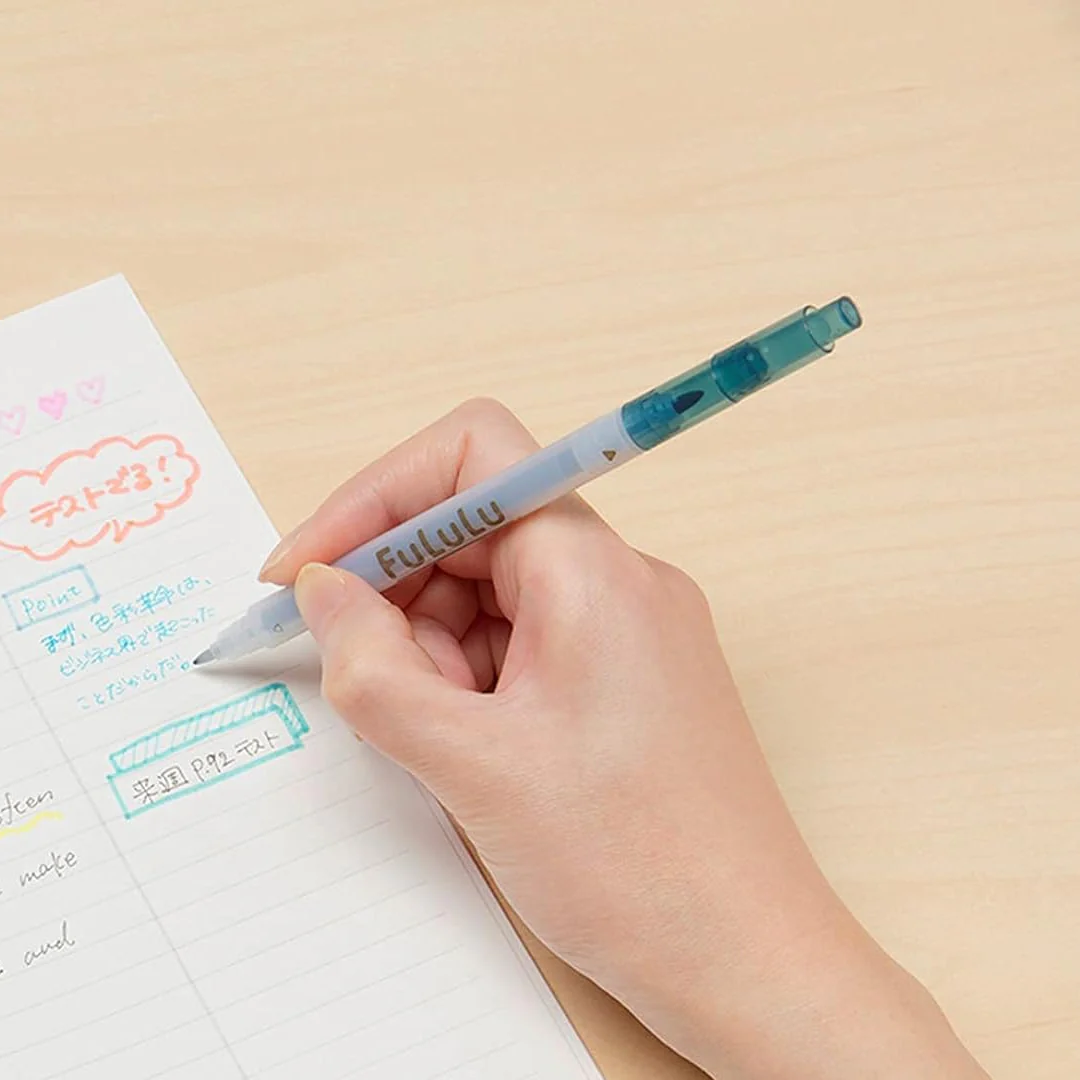 テストでる!
Point
まず、色彩革命は、
ビジネス界で起こった
ことだからだ。
来週 P.92 テスト
often
make
and
FuLuLu